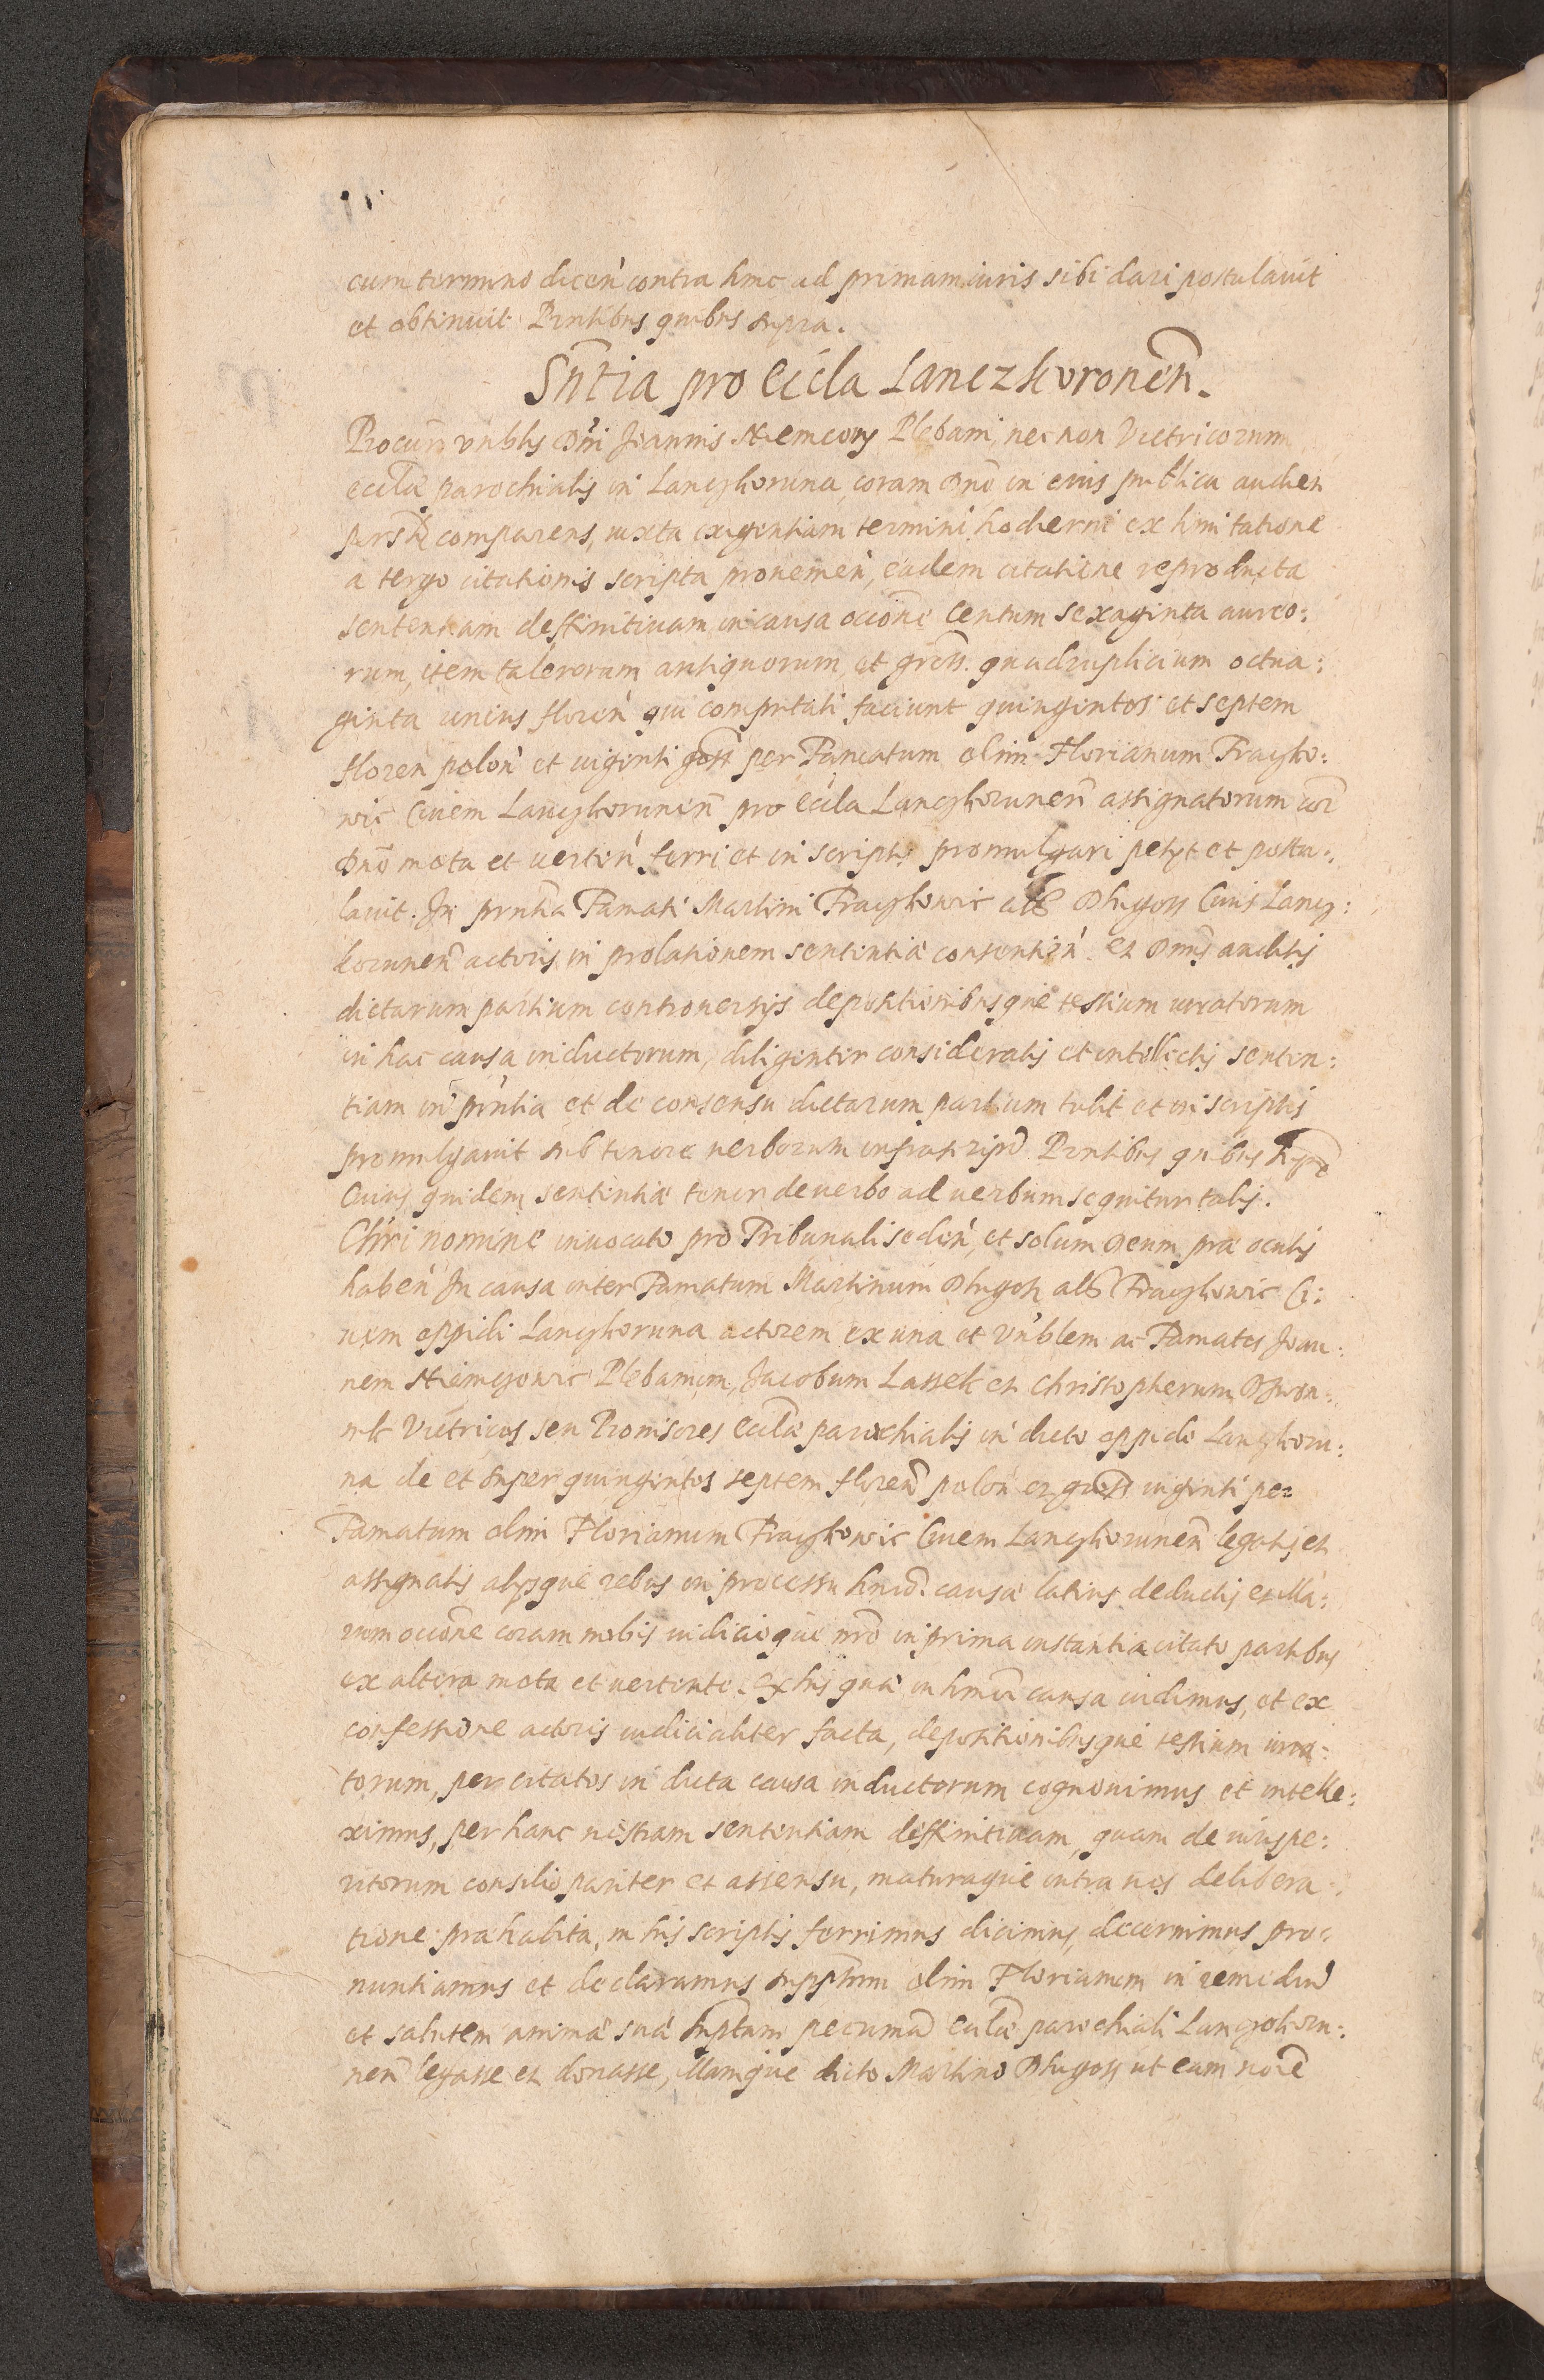 cum termino dicen contra hinc ad primam iuris sibi dari postulavit
et obtinuit Pntibus quibus supra.
Sñtia pro Eccla Lanczkoronen̄.
Procur vnblis Dni Joannis Niemcowy Plebani, nec non Victricorum
eccliæ parochialis in Lanczkoruna coram Dno in eius publica audien
comparens, iuxta exigentiam termini hodierni ex limitatione
a tergo citationis scripta provenien, eadem citatione reproducta
sententiam deffinitiuam in causa occione Centum Sexaginta aureo:
rum, item talerorum antiquorum, et gross. quadruplicium octua:
ginta unius floren qui computati faciunt quingintos et septem
floren polon et viginti gross per Famatum olim Florianum Fraczko:
wic Ciuem Lanczkorunen pro Eccla Lanczkorunen assignatorum cor
Dno mota et verten ferri et in scriptis promulgari petyt et postu:
lauit. In pruntia Famati Martini Fraczkowic als Dlugoss Ciuis Lancz:
korunen actoris in prolationem sententiæ consentien Et Dnus auditis
dictarum partium controuersijs depositionibusque testium iuratorum
in hac causa inductorum, diligenter consideratis et intellectis senten:
tiam in pruntia et de consensu dictarum partium tulit et in scriptis
promulgauit sub tenore uerborum infrascript Pntibus quibus supra
Cuius quidem sententiæ tenor de uerbo ad uerbum sequitur talis.
Chri nomine inuocato pro Tribunali seden, et solum Deum præ oculis
haben In causa inter Famatum Martinum Dlugoss als Fraczkowic Ci:
uem oppidi Lanczkoruna actorem ex una et Vnblem ac Famatos Joan:
nem Niemczowic Plebanum, Jacobum Lassek et Christopherum Dzwon:
nik Victricos seu Prouisores Eccliæ parochialis in dicto oppido Lanczkoru:
na de et super quingintos septem floren polon et gross viginti per
Famatum olim Florianum Fraczkowic Ciuem Lanczkorunen legatis et
assignatis alijsque rebus in processu hmoi causæ latius deductis et illa:
rum occione coram nobis iudicioque nro in prima instantia citato partibus
ex altera mota et uertente. Ex his quæ in hmoi causa uidimus, et ex
confessione actoris iudicialiter facta, depositionibusque testium iura:
torum, per citatos in dicta causa inductorum cognouimus et intelle:
ximus, per hanc nostram sententiam deffinitiuam, quam de iurispe:
ritorum consilio pariter et assensu, maturaque intra nos delibera:
tione præhabita, in his scriptis ferrimus dicimus, decernimus pro:
nuntiamus et declaramus supptum olim Florianum in remediu
et salutem animæ suæ suptam pecunia eccliæ parochiali Lanczkoru:
nen legasse et donasse, illamque dicto Martino Dlugoss ut eam noie